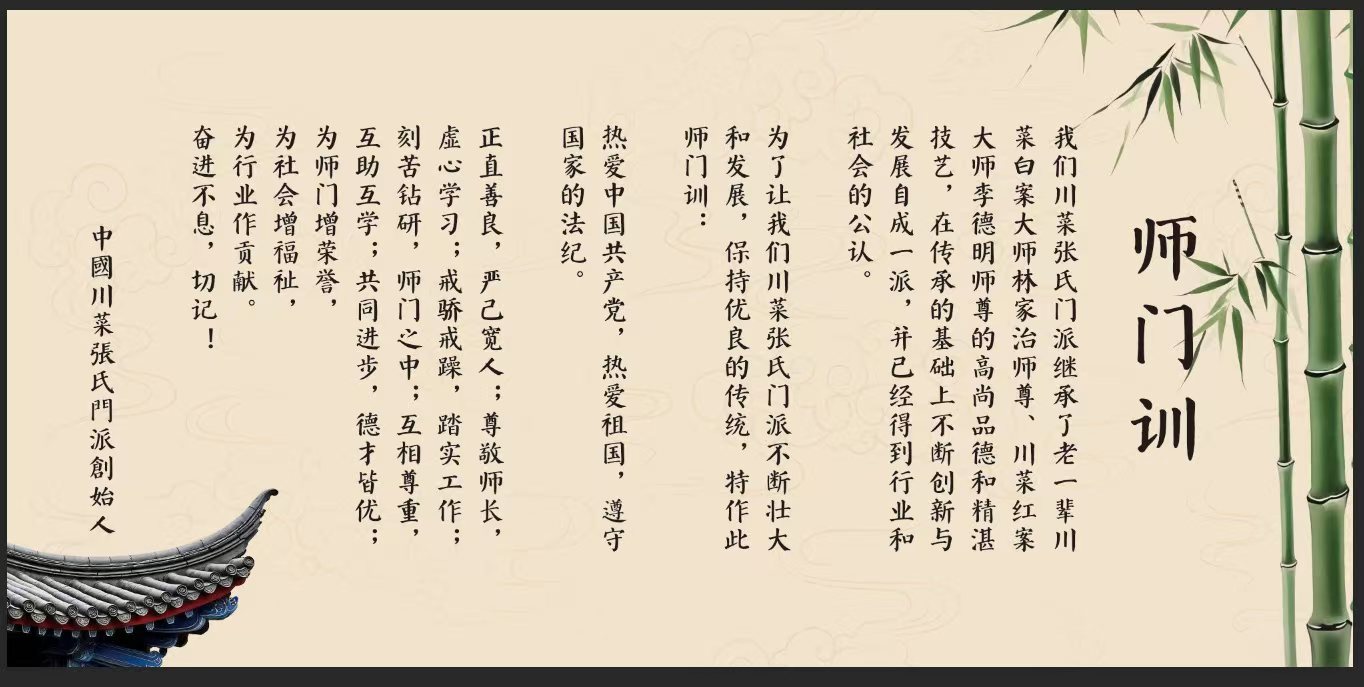 师门训
我们川菜张氏门派继承了老一辈川
菜白案大师林家治师尊、川菜红案
大师李德明师尊的高尚品德和精湛
技艺，在传承的基础上不断创新与
发展自成一派，并已经得到行业和
社会的公认。
为了让我们川菜张氏门派不断壮大
和发展，保持优良的传统，特作此
师门训：
热爱中国共产党，热爱祖国，遵守
国家的法纪。
正直善良，严己宽人；尊敬师长，
虚心学习；戒骄戒躁，踏实工作；
刻苦钻研，师门之中；互相尊重，
互助互学；共同进步，德才皆优；
为师门增荣誉，
为社会增福祉，
为行业作贡献。
奋进不息，切记！
中國川菜張氏門派創始人